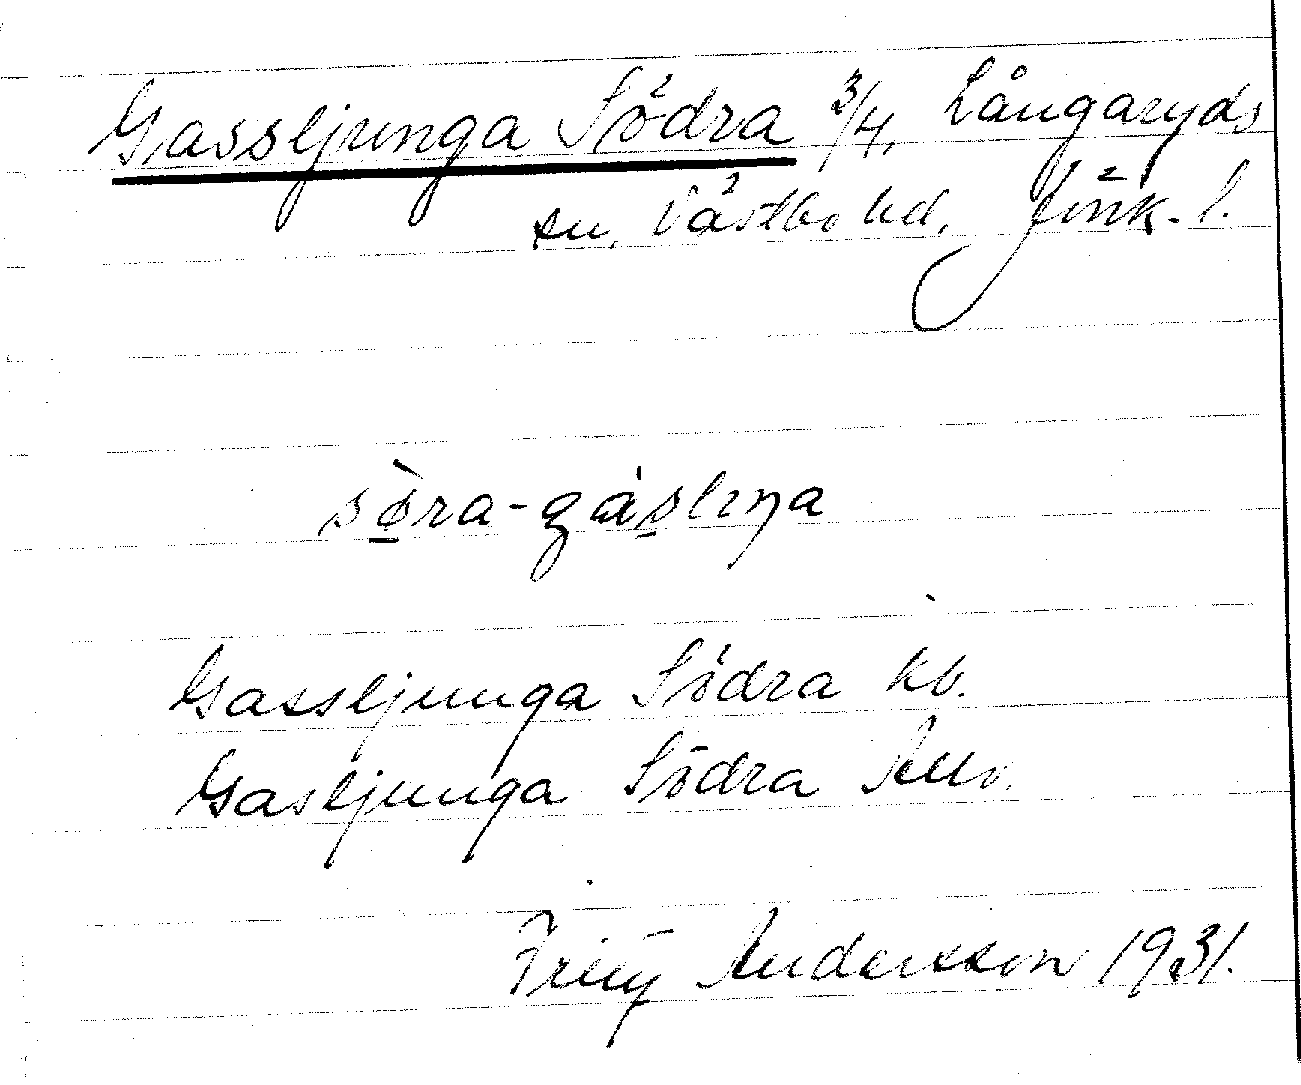 Gassljunga Södra 3/4, Långaryds
sn, Västbo hd, Jönk. l.
sö̀ra-gáslıŋa
Gassljunga Södra kb.
Gasljunga Södra
Andersson 1931.